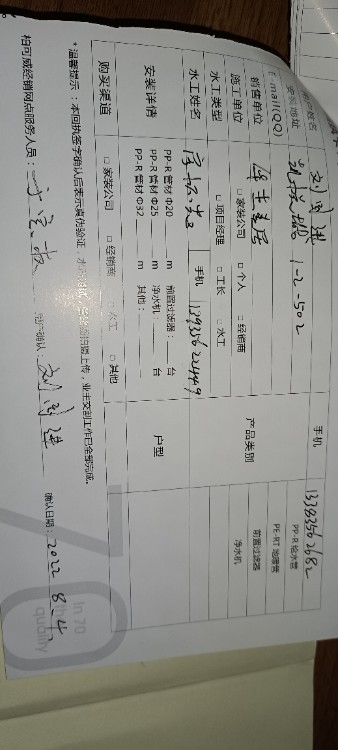 用户姓名 刘国进 手机 13383562682
安装地址 1-2-502 PP-R 给水管
E-mail(QQ) PE-RT 地暖管
销售单位 产品类别 前置过滤器
施工单位 □ 家装公司 □ 个人 □ 经销商 净水机
水工类型 □ 项目经理 □ 工长 □ 水工
水工姓名 手机 13935622449
安装详情 PP-R 管材 Φ20 m 前置过滤器： 台 户型
PP-R 管材 Φ25 m 净水机： 台
PP-R 管材 Φ32 m 其他：
购买渠道 □ 家装公司 □ 经销商 □ 水工 □ 其他
*温馨提示：本回执签字确认后表示真伪验证、水 拍照上传，业主交割工作已全部完成。
柏可威经销网点服务人员： 用户确认： 刘国进 确认日期：2022 8-4
70
In 70
quality